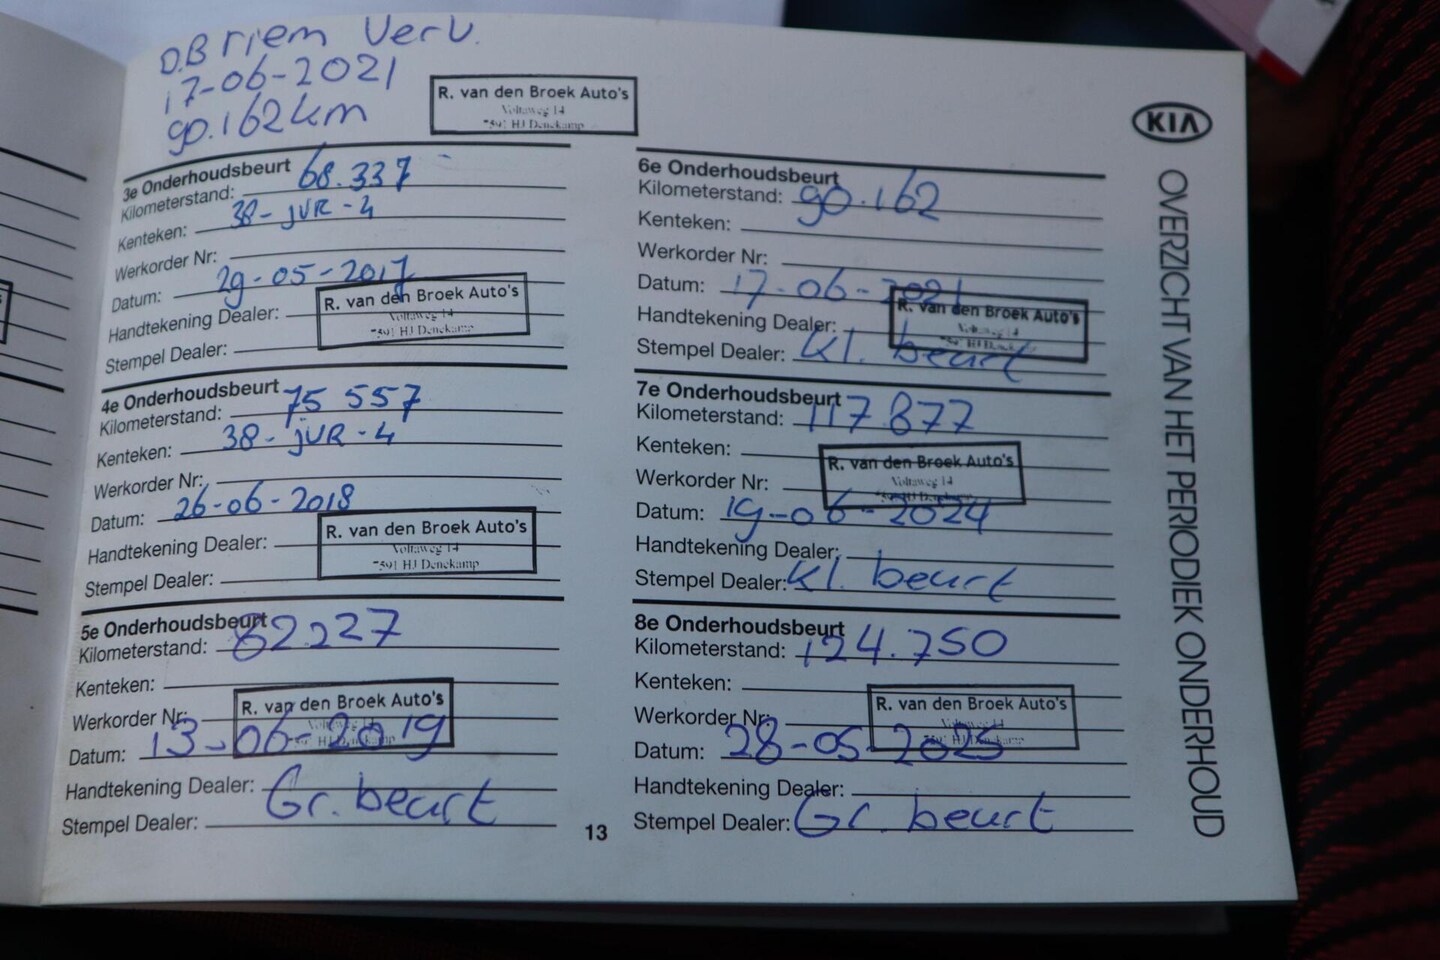 D.B riem Verv.
17-06-2021
90.162 km
R. van den Broek Auto's
Voltaweg 14
7591 HJ Denekamp
3e Onderhoudsbeurt
Kilometerstand: 68.337
Kenteken: 38-JVR-4
Werkorder Nr:
Datum: 29-05-2017
Handtekening Dealer:
Stempel Dealer:
R. van den Broek Auto's
Voltaweg 14
7591 HJ Denekamp
4e Onderhoudsbeurt
Kilometerstand: 75 557
Kenteken: 38-JVR-4
Werkorder Nr:
Datum: 26-06-2018
Handtekening Dealer:
Stempel Dealer:
R. van den Broek Auto's
Voltaweg 14
7591 HJ Denekamp
5e Onderhoudsbeurt
Kilometerstand: 82.227
Kenteken:
Werkorder Nr:
Datum: 13-06-2019
Handtekening Dealer:
Stempel Dealer: Gr. beurt
R. van den Broek Auto's
Voltaweg 14
HJ Denekamp
6e Onderhoudsbeurt
Kilometerstand: 90.162
Kenteken:
Werkorder Nr:
Datum: 17-06-2021
Handtekening Dealer:
Stempel Dealer: Kl. beurt
R. van den Broek Auto's
Voltaweg 14
7e Onderhoudsbeurt
Kilometerstand: 117.877
Kenteken:
Werkorder Nr:
Datum: 19-06-2024
Handtekening Dealer:
Stempel Dealer: Kl. beurt
R. van den Broek Auto's
Voltaweg 14
8e Onderhoudsbeurt
Kilometerstand: 124.750
Kenteken:
Werkorder Nr:
Datum: 28-05-2025
Handtekening Dealer:
Stempel Dealer: Gr. beurt
R. van den Broek Auto's
Voltaweg 14
HJ Denekamp
13
KIA
OVERZICHT VAN HET PERIODIEK ONDERHOUD